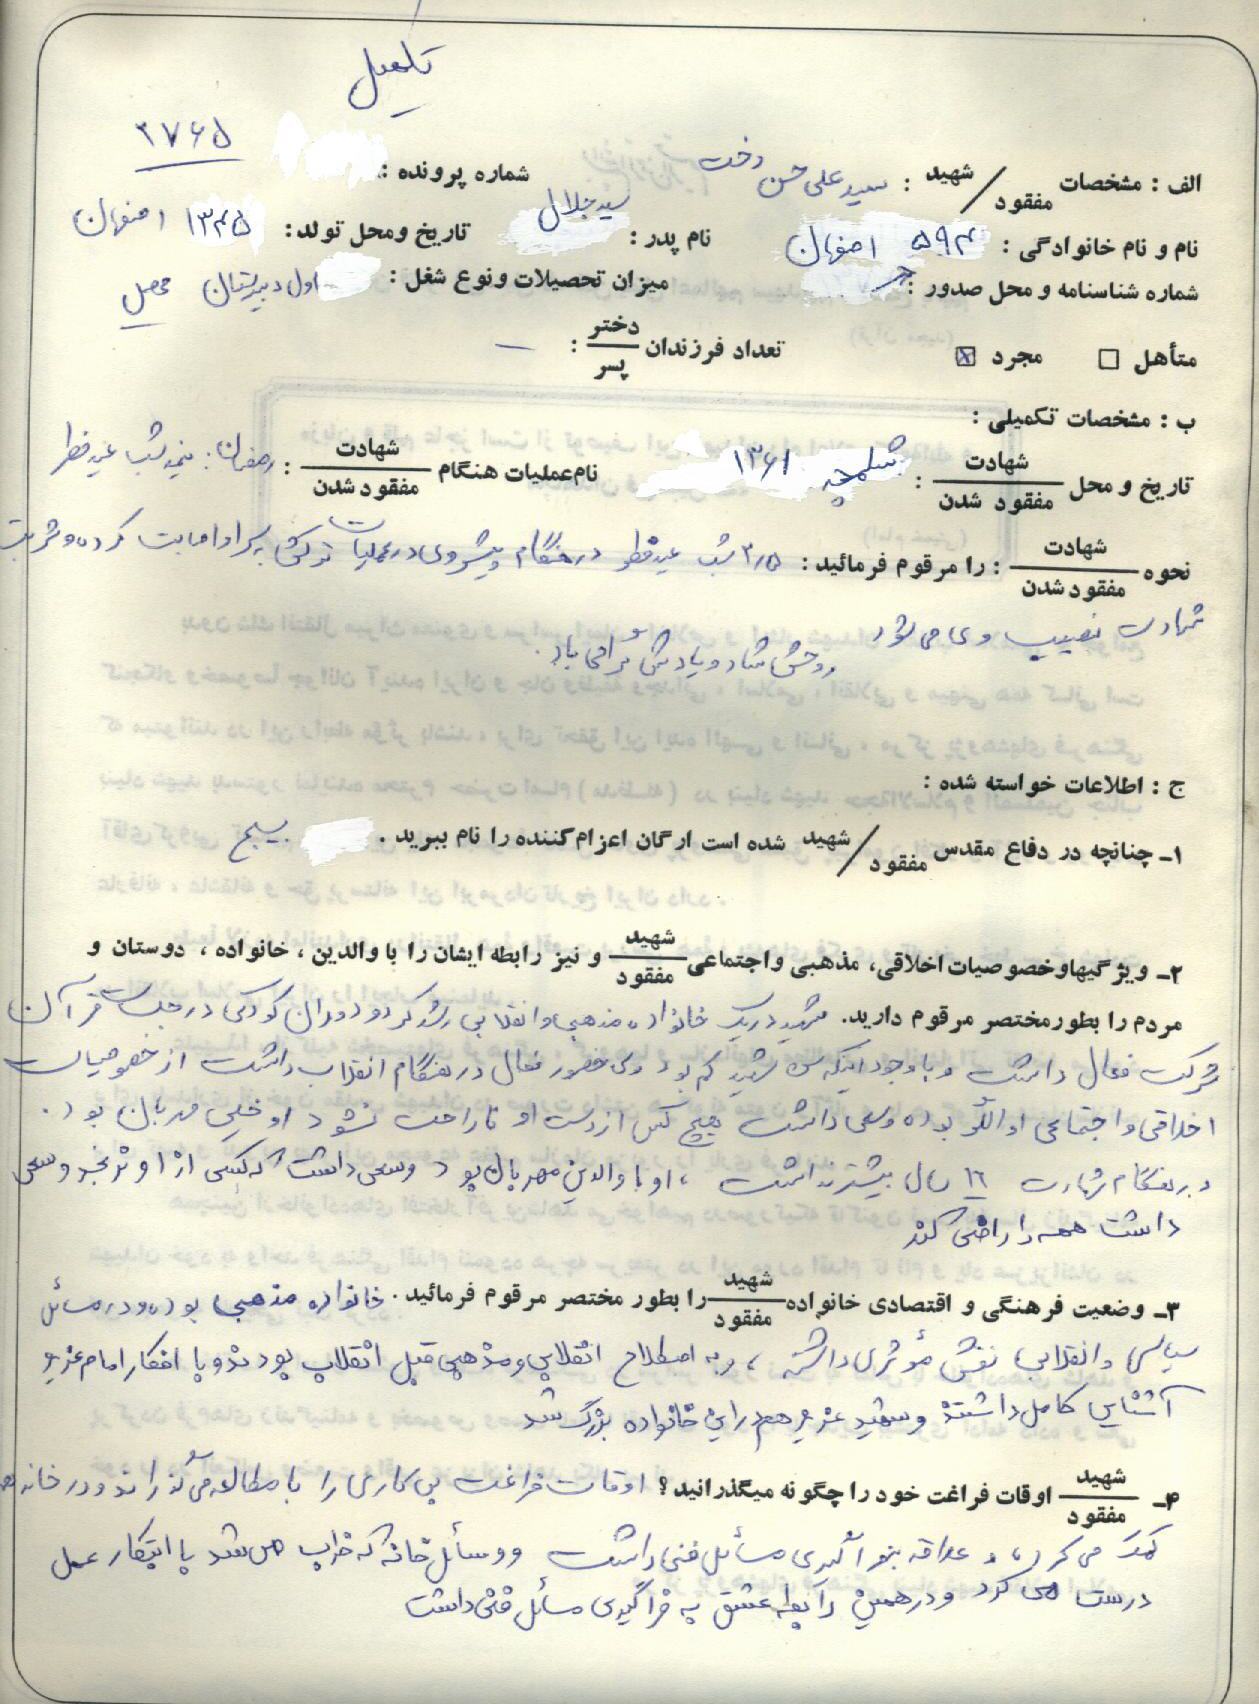 تکمیل
۲۷۶۵
الف : مشخصات شهید / مفقود : سید علی حسن دخت شماره پرونده :
نام و نام خانوادگی : ۵۹۴ اصفهان نام پدر : سید جلال تاریخ ومحل تولد : ۱۳۴۵ اصفهان
شماره شناسنامه و محل صدور : میزان تحصیلات ونوع شغل : اول دبیرستان محصل
متأهل ☐ مجرد ☒ تعداد فرزندان دختر / پسر : —
ب : مشخصات تکمیلی :
تاریخ و محل شهادت / مفقود شدن : شلمچه ۱۳۶۱ نام عملیات هنگام شهادت / مفقود شدن : رمضان : نیمه شب عید فطر
نحوه شهادت / مفقود شدن : را مرقوم فرمائید : ۳/۵ شب عید فطر در هنگام پیشروی در عملیات ترکش به او اصابت کرده و شربت
شهادت نصیب وی می شود
روحش شاد و یادش گرامی باد .
ج : اطلاعات خواسته شده :
۱ـ چنانچه در دفاع مقدس شهید / مفقود شده است ارگان اعزام کننده را نام ببرید . بسیج
۲ـ ویژگیهاوخصوصیات اخلاقی، مذهبی واجتماعی شهید / مفقود و نیز رابطه ایشان را با والدین ، خانواده ، دوستان و
مردم را بطور مختصر مرقوم دارید. شهید در یک خانواده مذهبی و انقلابی رشد کرد و دوران کودکی در جلسات قرآن
شرکت فعال داشت و با وجود اینکه سن شهید کم بود ولی حضور فعال در هنگام انقلاب داشت از خصوصیات
اخلاقی و اجتماعی او الگو بوده وسعی داشت هیچ کس از دست او ناراحت نشود او خیلی مهربان بود .
در هنگام شهادت ۱۶ سال بیشتر نداشت ، او با والدین مهربان بود وسعی داشت که کسی از او نرنجد وسعی
داشت همه را راضی کند
۳ـ وضعیت فرهنگی و اقتصادی خانواده شهید / مفقود را بطور مختصر مرقوم فرمائید . خانواده مذهبی بوده و در مسائل
سیاسی و انقلابی نقش مؤثری داشته ، و به اصطلاح انقلابی و مذهبی قبل انقلاب بودند و با افکار امام عزیز
آشنایی کامل داشتند و شهید عزیز هم در این خانواده بزرگ شد
۴ـ شهید / مفقود اوقات فراغت خود را چگونه میگذرانید؟ اوقات فراغت بی کاری را با مطالعه می گذراند و در خانه
کمک می کرد ، و علاقه به فراگیری مسائل فنی داشت و وسائل خانه که خراب می شد با ابتکار عمل
درست می کرد و در همین رابطه عشق به فراگیری مسائل فنی داشت